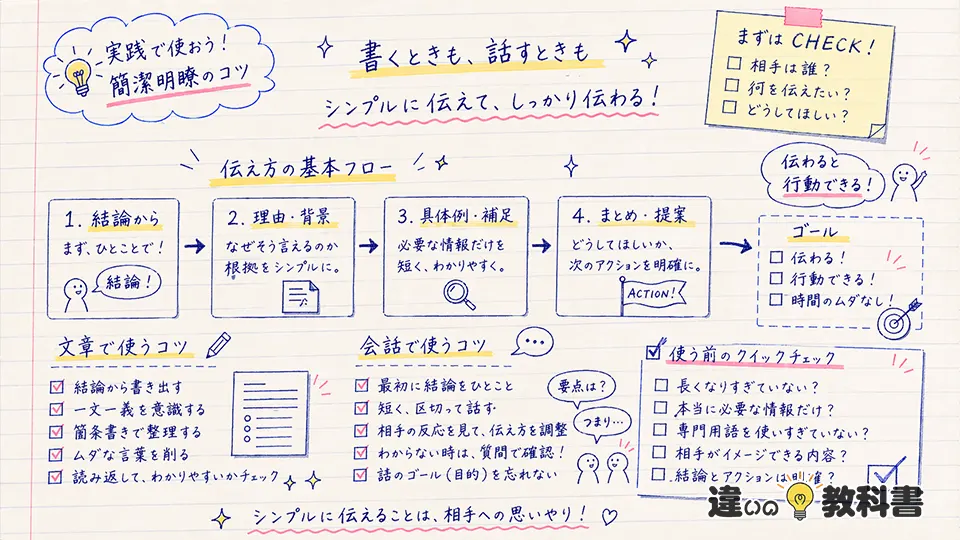 実践で使おう!
簡潔明瞭のコツ
書くときも、話すときも
シンプルに伝えて、しっかり伝わる!
まずは CHECK!
相手は誰?
何を伝えたい?
どうしてほしい?
伝え方の基本フロー
伝わると
行動できる!
1. 結論から
まず、ひとことで!
結論!
2. 理由・背景
なぜそう言えるのか
根拠をシンプルに。
3. 具体例・補足
必要な情報だけを
短く、わかりやすく。
4. まとめ・提案
どうしてほしいか、
次のアクションを明確に。
ACTION!
ゴール
伝わる!
行動できる!
時間のムダなし!
文章で使うコツ
結論から書き出す
一文一義を意識する
箇条書きで整理する
ムダな言葉を削る
読み返して、わかりやすいかチェック
会話で使うコツ
最初に結論をひとこと
短く、区切って話す
相手の反応を見て、伝え方を調整
わからない時は、質問で確認!
話のゴール(目的)を忘れない
要点は?
つまり…
使う前のクイックチェック
長くなりすぎていない?
本当に必要な情報だけ?
専門用語を使いすぎていない?
相手がイメージできる内容?
結論とアクションは明確?
シンプルに伝えることは、相手への思いやり!
違いの教科書